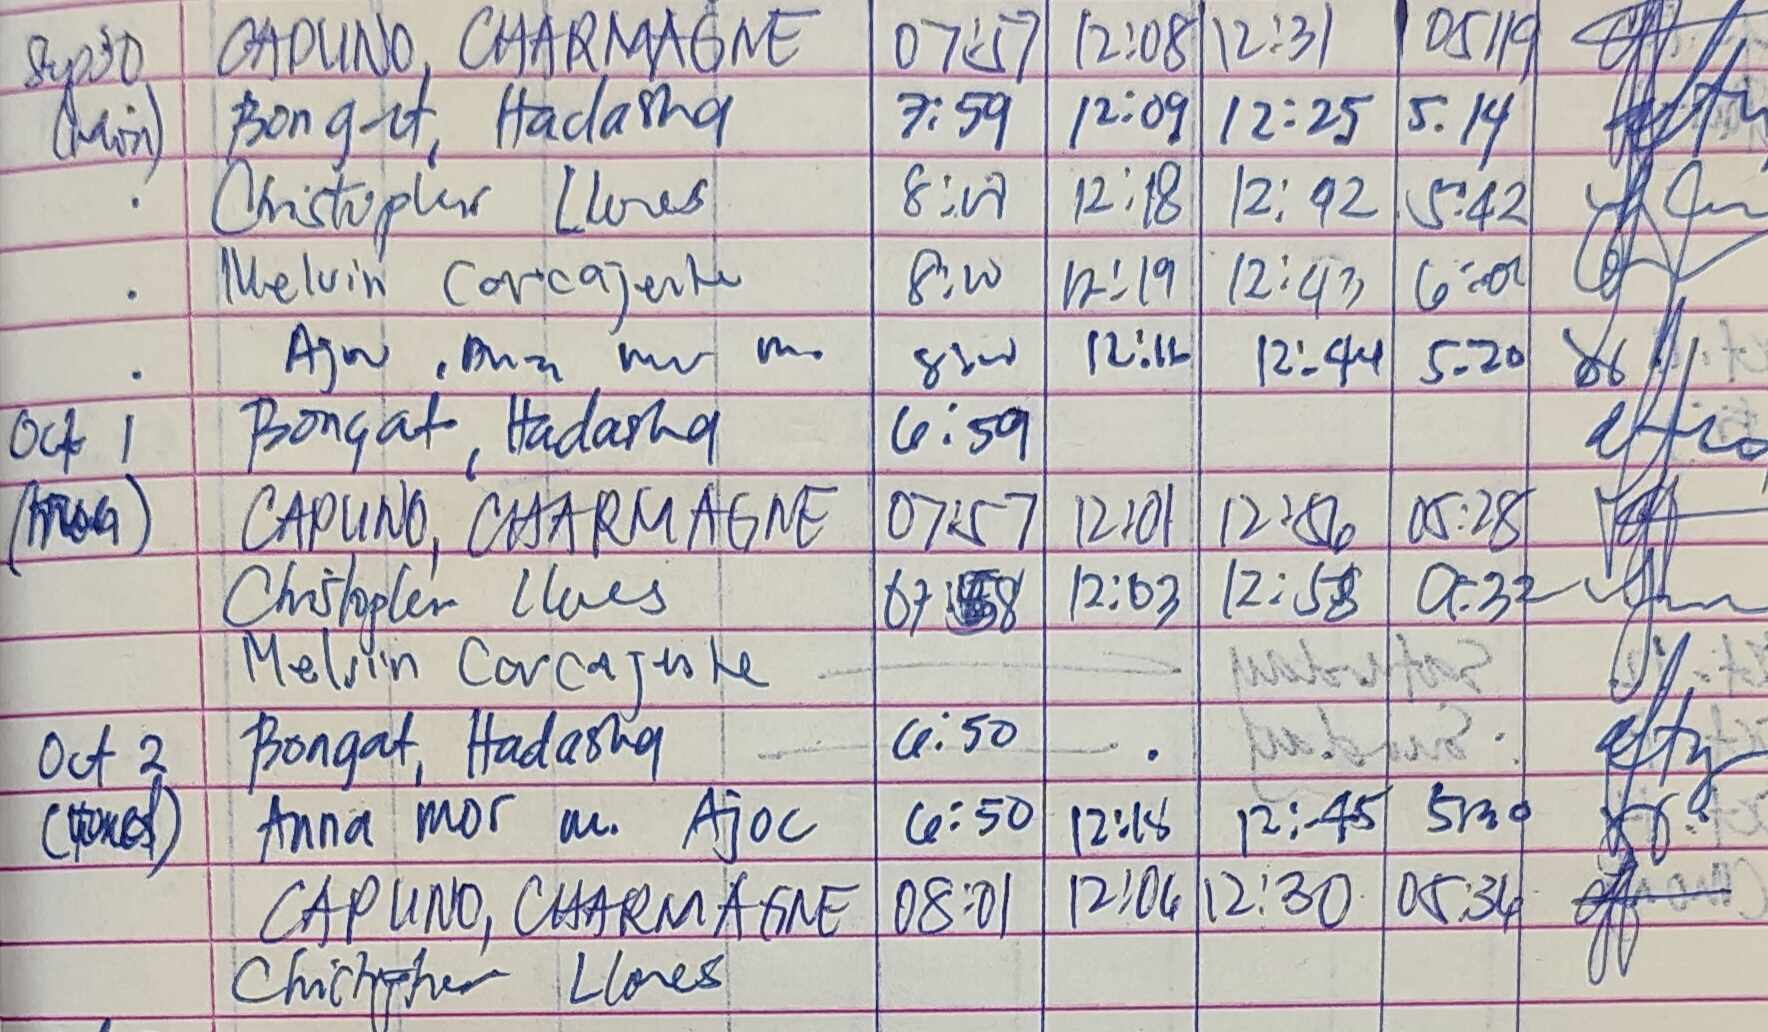 Sep 30 CAPUNO, CHARMAGNE 07:57 12:08 12:31 05:19
(Mon) Bongat, Hadasha 7:59 12:09 12:25 5:14
Christopher Llones 12:18 12:42 5:42
Melvin Corcajente 12:19 12:43
Ajoc 12:44 5:20
Oct 1 Bongat, Hadasha 6:59
CAPUNO, CHARMAGNE 07:57 12:01 12:56 05:28
Christopher Llones 07:58 12:03 12:58 05:32
Melvin Corcajente
Oct 2 Bongat, Hadasha 6:50
Anna mor m. Ajoc 6:50 12:18 12:45 5:30
CAPUNO, CHARMAGNE 08:01 12:06 12:30 05:36
Christopher Llones